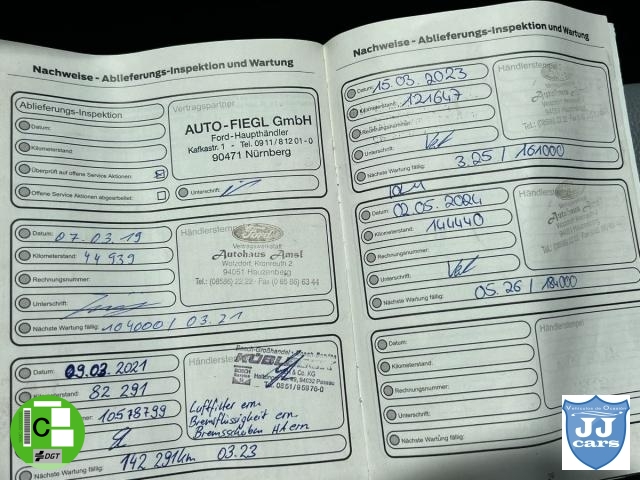 Nachweise - Ablieferungs-Inspektion und Wartung
Ablieferungs-Inspektion
Datum:
Kilometerstand:
Überprüft auf offene Service Aktionen:
Offene Service Aktionen abgearbeitet:
Vertragspartner
AUTO-FIEGL GmbH
Ford-Haupthändler
Kafkastr. 1 - Tel. 09 11 / 8 12 01 - 0
90471 Nürnberg
Unterschrift:
Datum: 07.03.19
Kilometerstand: 44 939
Rechnungsnummer:
Unterschrift:
Nächste Wartung fällig: 104000 / 03.21
Händlerstempel
Ford
Vertragswerkstatt
Autohaus Amsl
Wotzdorf, Kronreuth 2
94051 Hauzenberg
Tel.: (08586) 22 22 - Fax (0 85 86) 63 44
Datum: 09.03.2021
Kilometerstand: 82 291
10578799
Nächste Wartung fällig: 142 291km 03.23
Händlerstempel
& Co. KG
94032 Passau
Tel. 0851/95976-0
Luftfilter ern.
Bremsflüssigkeit ern.
Bremsscheiben HA ern
Nachweise - Ablieferungs-Inspektion und Wartung
Datum: 15.03.2023
Kilometerstand: 121647
Rechnungsnummer:
Unterschrift:
Nächste Wartung fällig: 3.25 / 161000
Händlerstempel
Autohaus Amsl
Datum: 02.05.2024
Kilometerstand: 144440
Rechnungsnummer:
Unterschrift:
Nächste Wartung fällig: 05.26 / 184000
Händlerstempel
Autohaus Amsl
Datum:
Kilometerstand:
Rechnungsnummer:
Unterschrift:
Nächste Wartung fällig:
C
DGT
JJ
cars